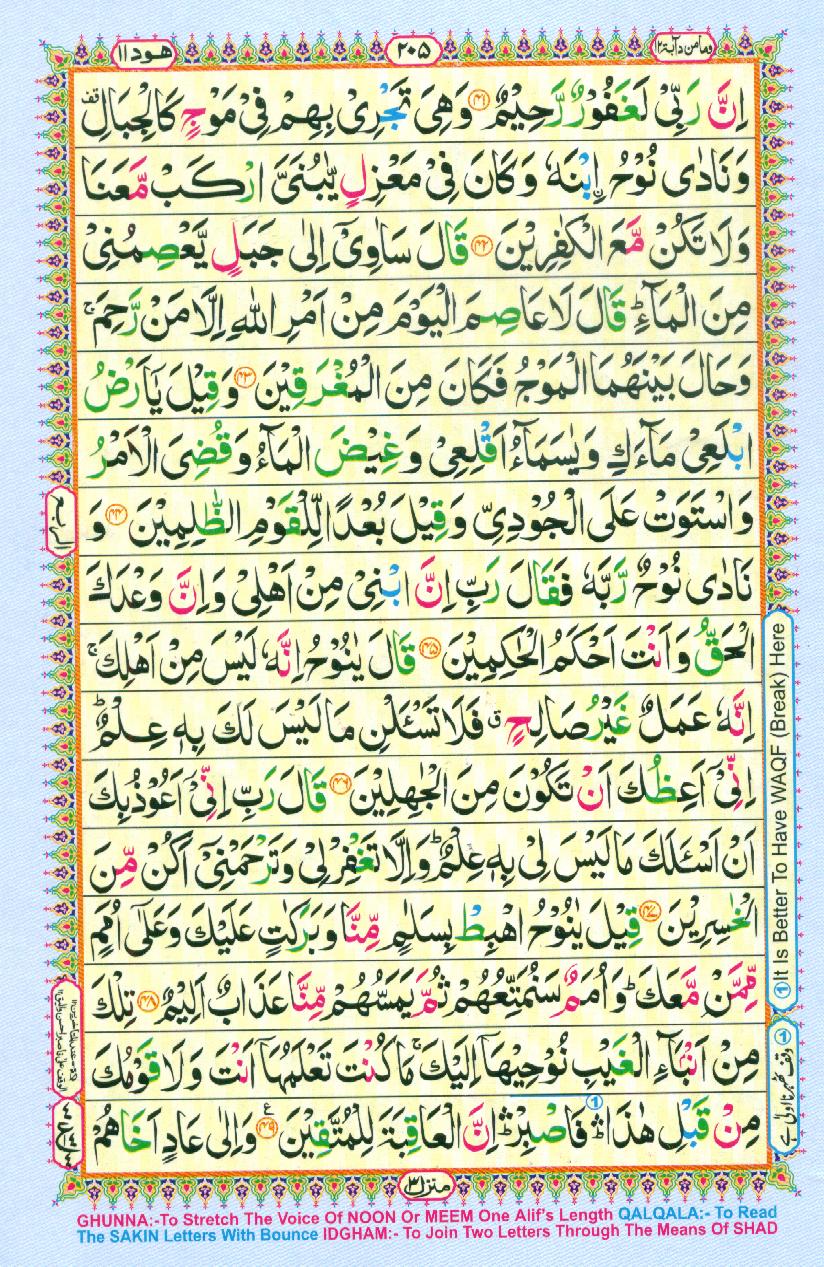 وما من دآبة ١٢
٢٠٥
هود ١١
اِنَّ رَبِّیْ لَغَفُوْرٌ رَّحِیْمٌ ۝۴۱ وَهِیَ تَجْرِیْ بِهِمْ فِیْ مَوْجٍ كَالْجِبَالِ قف
وَنَادٰی نُوْحُ اِ۟بْنَهٗ وَكَانَ فِیْ مَعْزِلٍ یّٰبُنَیَّ ارْكَبْ مَّعَنَا
وَلَا تَكُنْ مَّعَ الْكٰفِرِیْنَ ۝۴۲ قَالَ سَاٰوِیْۤ اِلٰی جَبَلٍ یَّعْصِمُنِیْ
مِنَ الْمَآءِ ؕ قَالَ لَا عَاصِمَ الْیَوْمَ مِنْ اَمْرِ اللّٰهِ اِلَّا مَنْ رَّحِمَ ۚ
وَحَالَ بَیْنَهُمَا الْمَوْجُ فَكَانَ مِنَ الْمُغْرَقِیْنَ ۝۴۳ وَقِیْلَ یٰۤاَرْضُ
ابْلَعِیْ مَآءَكِ وَیٰسَمَآءُ اَقْلِعِیْ وَغِیْضَ الْمَآءُ وَقُضِیَ الْاَمْرُ
وَاسْتَوَتْ عَلَی الْجُوْدِیِّ وَقِیْلَ بُعْدًا لِّلْقَوْمِ الظّٰلِمِیْنَ ۝۴۴ وَ
نَادٰی نُوْحٌ رَّبَّهٗ فَقَالَ رَبِّ اِنَّ ابْنِیْ مِنْ اَهْلِیْ وَاِنَّ وَعْدَكَ
الْحَقُّ وَاَنْتَ اَحْكَمُ الْحٰكِمِیْنَ ۝۴۵ قَالَ یٰنُوْحُ اِنَّهٗ لَیْسَ مِنْ اَهْلِكَ ۚ
اِنَّهٗ عَمَلٌ غَیْرُ صَالِحٍ ق فَلَا تَسْـَٔلْنِ مَا لَیْسَ لَكَ بِهٖ عِلْمٌ ؕ
اِنِّیْۤ اَعِظُكَ اَنْ تَكُوْنَ مِنَ الْجٰهِلِیْنَ ۝۴۶ قَالَ رَبِّ اِنِّیْۤ اَعُوْذُ بِكَ
اَنْ اَسْـَٔلَكَ مَا لَیْسَ لِیْ بِهٖ عِلْمٌ ؕ وَاِلَّا تَغْفِرْ لِیْ وَتَرْحَمْنِیْۤ اَكُنْ مِّنَ
الْخٰسِرِیْنَ ۝۴۷ قِیْلَ یٰنُوْحُ اهْبِطْ بِسَلٰمٍ مِّنَّا وَبَرَكٰتٍ عَلَیْكَ وَعَلٰۤی اُمَمٍ
مِّمَّنْ مَّعَكَ ؕ وَاُمَمٌ سَنُمَتِّعُهُمْ ثُمَّ یَمَسُّهُمْ مِّنَّا عَذَابٌ اَلِیْمٌ ۝۴۸ تِلْكَ
مِنْ اَنْۢبَآءِ الْغَیْبِ نُوْحِیْهَاۤ اِلَیْكَ ۚ مَا كُنْتَ تَعْلَمُهَاۤ اَنْتَ وَلَا قَوْمُكَ
مِنْ قَبْلِ هٰذَا ۛؕ فَاصْبِرْ ۛؕ اِنَّ الْعَاقِبَةَ لِلْمُتَّقِیْنَ ۝۴۹ ع وَاِلٰی عَادٍ اَخَاهُمْ
1
الربع
1 It Is Better To Have WAQF (Break) Here
منزل ٣
GHUNNA:-To Stretch The Voice Of NOON Or MEEM One Alif's Length QALQALA:- To Read
The SAKIN Letters With Bounce IDGHAM:- To Join Two Letters Through The Means Of SHAD